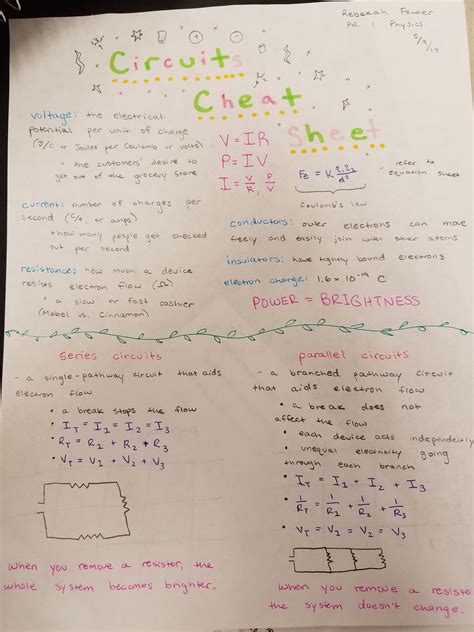 Rebekah Fowler
Pd. 1 Physics
5/9/19
Circuits
Cheat
Sheet
voltage: the electrical
potential per unit of charge
(J/C or Joules per Coulomb or volts)
• the customers' desire to
get out of the grocery store
current: number of charges per
second (C/s, or amps)
• how many people get checked
out per second
resistance: how much a device
resists electron flow (Ω)
• a slow or fast cashier
(Mabel vs. Cinnamon)
V = IR
P = IV
I = V/R, P/V
Fe = K q1q2/d²
Coulomb's law
- refer to
equation sheet
conductors: outer electrons can move
freely and easily join with other atoms
insulators: have tightly bound electrons
electron charge: 1.6 × 10⁻¹⁹ C
POWER = BRIGHTNESS
series circuits
- a single-pathway circuit that aids
electron flow
• a break stops the flow
• IT = I1 = I2 = I3
• RT = R1 + R2 + R3
• VT = V1 + V2 + V3
when you remove a resistor, the
whole system becomes brighter.
parallel circuits
- a branched pathway circuit
that aids electron flow
• a break does not
affect the flow
• each device acts independently
• unequal electricity going
through each branch
• IT = I1 + I2 + I3
• 1/RT = 1/R1 + 1/R2 + 1/R3
• VT = V1 = V2 = V3
when you remove a resisto
the system doesn't change.